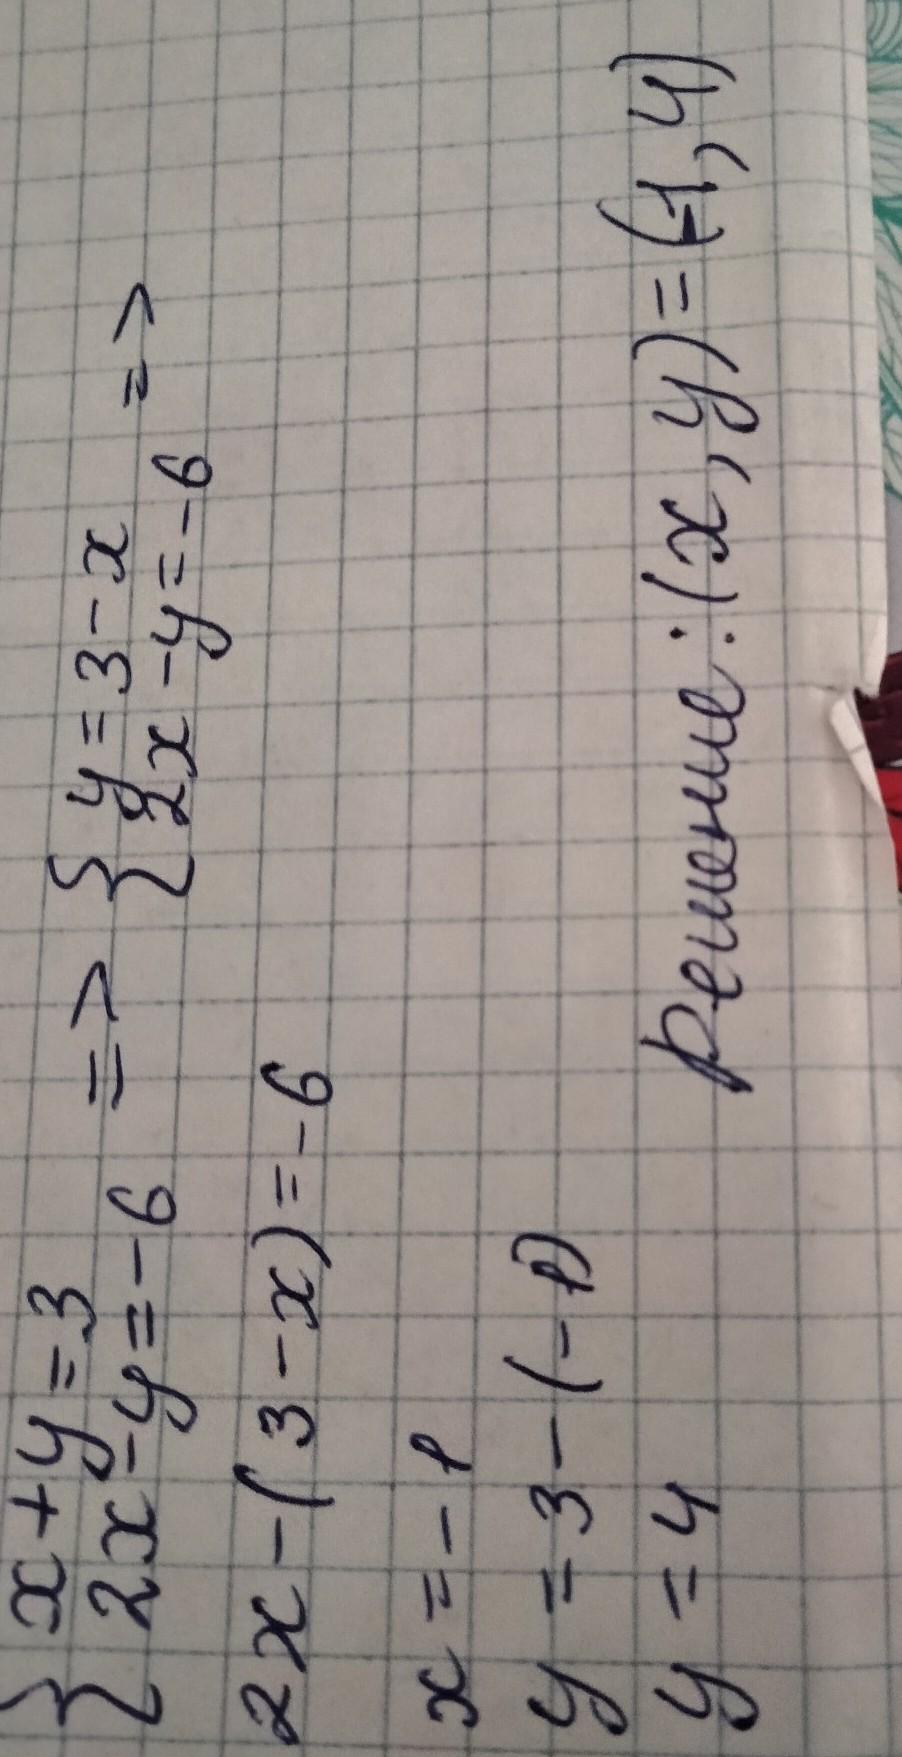 { x+y=3 => { y=3-x =>
2x-y=-6 2x-y=-6
2x-(3-x)=-6
x=-1
y=3-(-1)
y=4
Решение: (x,y)=(-1,4)